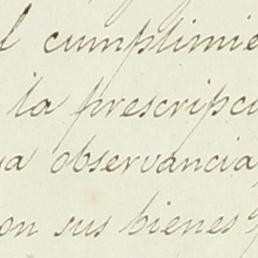 l cumplimie
la prescripci
ya observancia
on sus bienes